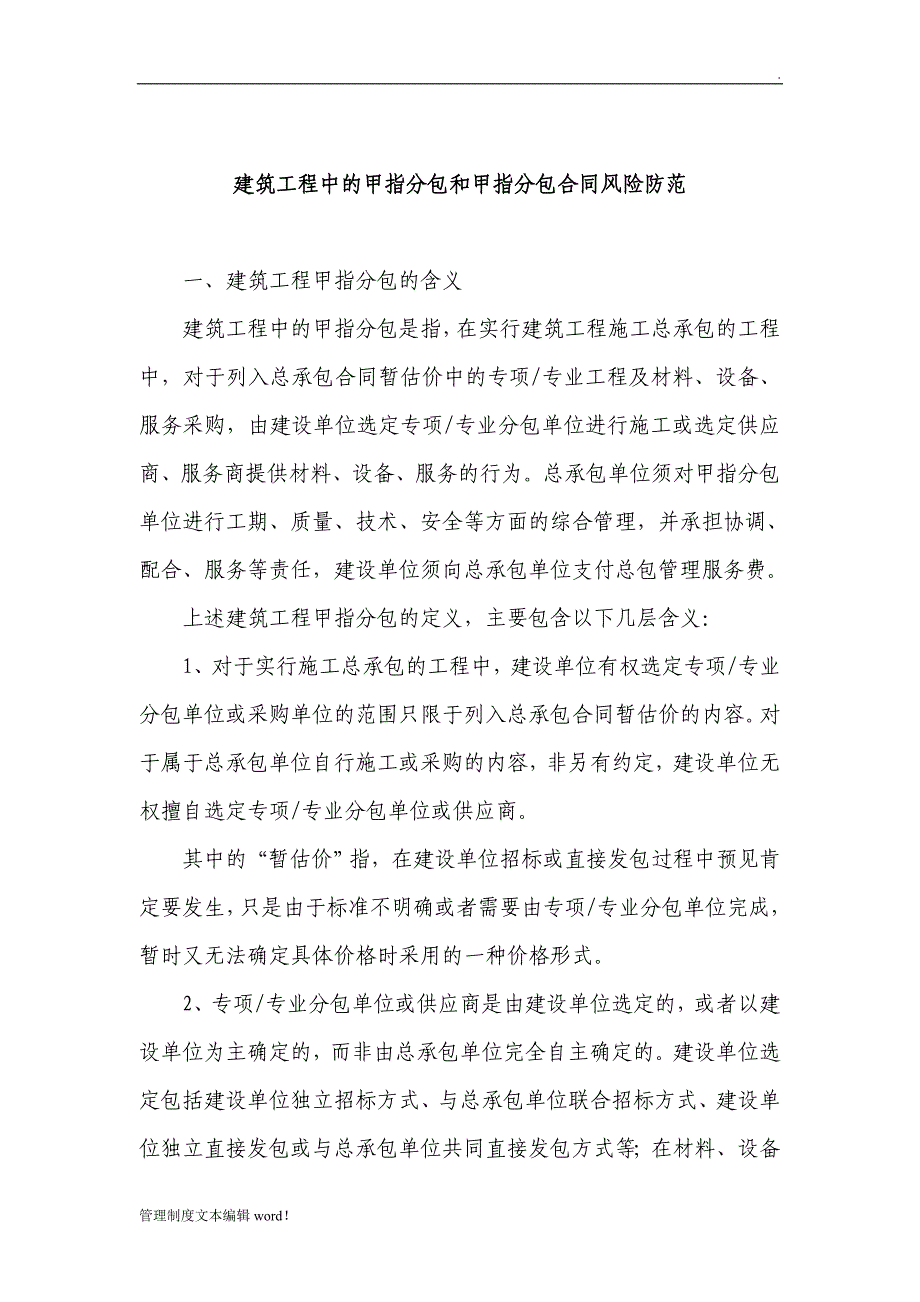 建筑工程中的甲指分包和甲指分包合同风险防范
一、建筑工程甲指分包的含义
建筑工程中的甲指分包是指，在实行建筑工程施工总承包的工程
中，对于列入总承包合同暂估价中的专项/专业工程及材料、设备、
服务采购，由建设单位选定专项/专业分包单位进行施工或选定供应
商、服务商提供材料、设备、服务的行为。总承包单位须对甲指分包
单位进行工期、质量、技术、安全等方面的综合管理，并承担协调、
配合、服务等责任，建设单位须向总承包单位支付总包管理服务费。
上述建筑工程甲指分包的定义，主要包含以下几层含义：
1、对于实行施工总承包的工程中，建设单位有权选定专项/专业
分包单位或采购单位的范围只限于列入总承包合同暂估价的内容。对
于属于总承包单位自行施工或采购的内容，非另有约定，建设单位无
权擅自选定专项/专业分包单位或供应商。
其中的“暂估价”指，在建设单位招标或直接发包过程中预见肯
定要发生，只是由于标准不明确或者需要由专项/专业分包单位完成，
暂时又无法确定具体价格时采用的一种价格形式。
2、专项/专业分包单位或供应商是由建设单位选定的，或者以建
设单位为主确定的，而非由总承包单位完全自主确定的。建设单位选
定包括建设单位独立招标方式、与总承包单位联合招标方式、建设单
位独立直接发包或与总承包单位共同直接发包方式等；在材料、设备
管理制度文本编辑 word！